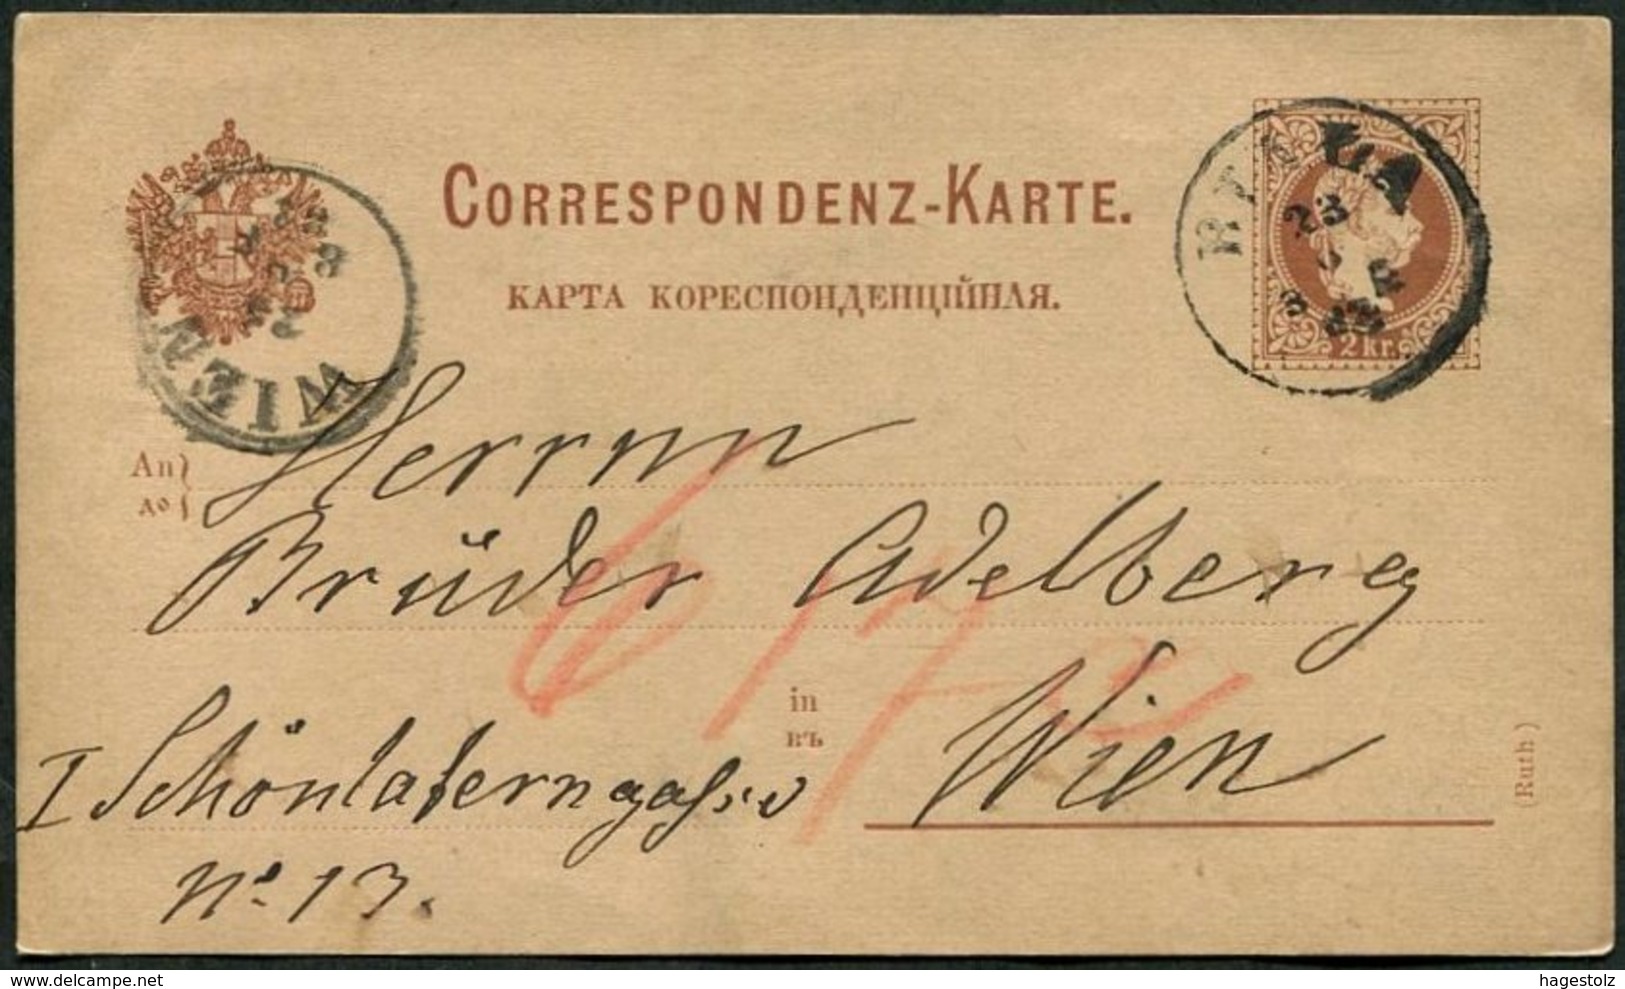 CORRESPONDENZ-KARTE.
КАРТА КОРЕСПОНДЕНЦІЙНАЯ.
BIALA
23
2 kr.
WIEN
An
до
Herrnn
Brüder Adelberg
in
въ
Wien
I Schönlaterngasse
No 13.
(Ruth)
www.delcampe.net
hagestolz